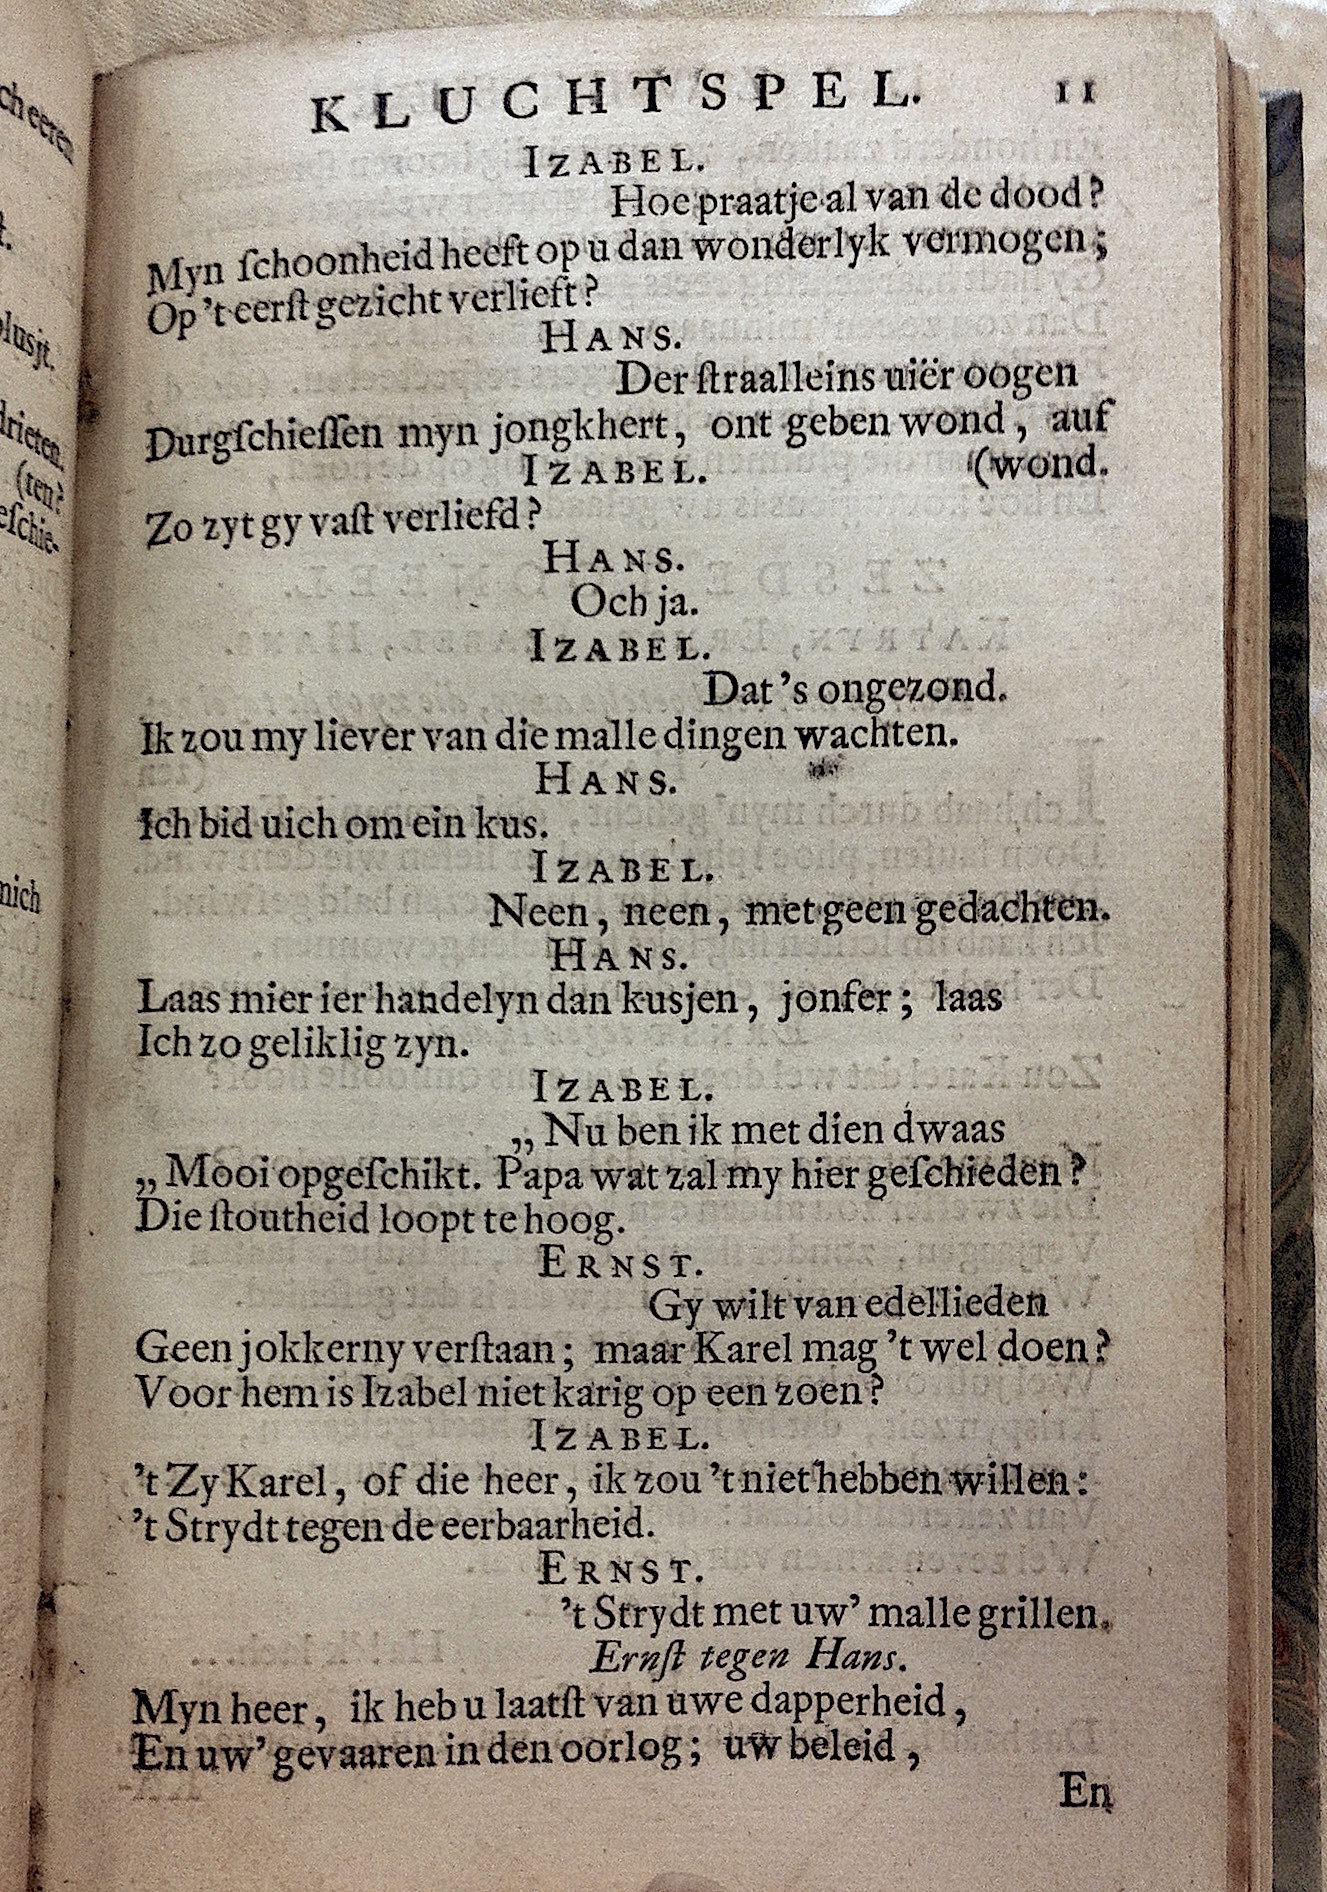 ch eeren
t.
olusjt.
drieten.
(ten?
eſchie-
mich
KLUCHTSPEL. 11
IZABEL.
Hoe praatje al van de dood?
Myn ſchoonheid heeft op u dan wonderlyk vermogen;
Op 't eerſt gezicht verlieft?
HANS.
Der ſtraalleins uiër oogen
Durgſchieſſen myn jongkhert, ont geben wond, auf
(wond.
IZABEL.
Zo zyt gy vaſt verliefd?
HANS.
Och ja.
IZABEL.
Dat 's ongezond.
Ik zou my liever van die malle dingen wachten.
HANS.
Ich bid uich om ein kus.
IZABEL.
Neen, neen, met geen gedachten.
HANS.
Laas mier ier handelyn dan kusjen, jonfer; laas
Ich zo geliklig zyn.
IZABEL.
„Nu ben ik met dien dwaas
„Mooi opgeſchikt. Papa wat zal my hier geſchieden?
Die ſtoutheid loopt te hoog.
ERNST.
Gy wilt van edellieden
Geen jokkerny verſtaan; maar Karel mag 't wel doen?
Voor hem is Izabel niet karig op een zoen?
IZABEL.
't Zy Karel, of die heer, ik zou 't niet hebben willen:
't Strydt tegen de eerbaarheid.
ERNST.
't Strydt met uw' malle grillen.
Ernſt tegen Hans.
Myn heer, ik heb u laatſt van uwe dapperheid,
En uw' gevaaren in den oorlog; uw beleid,
En